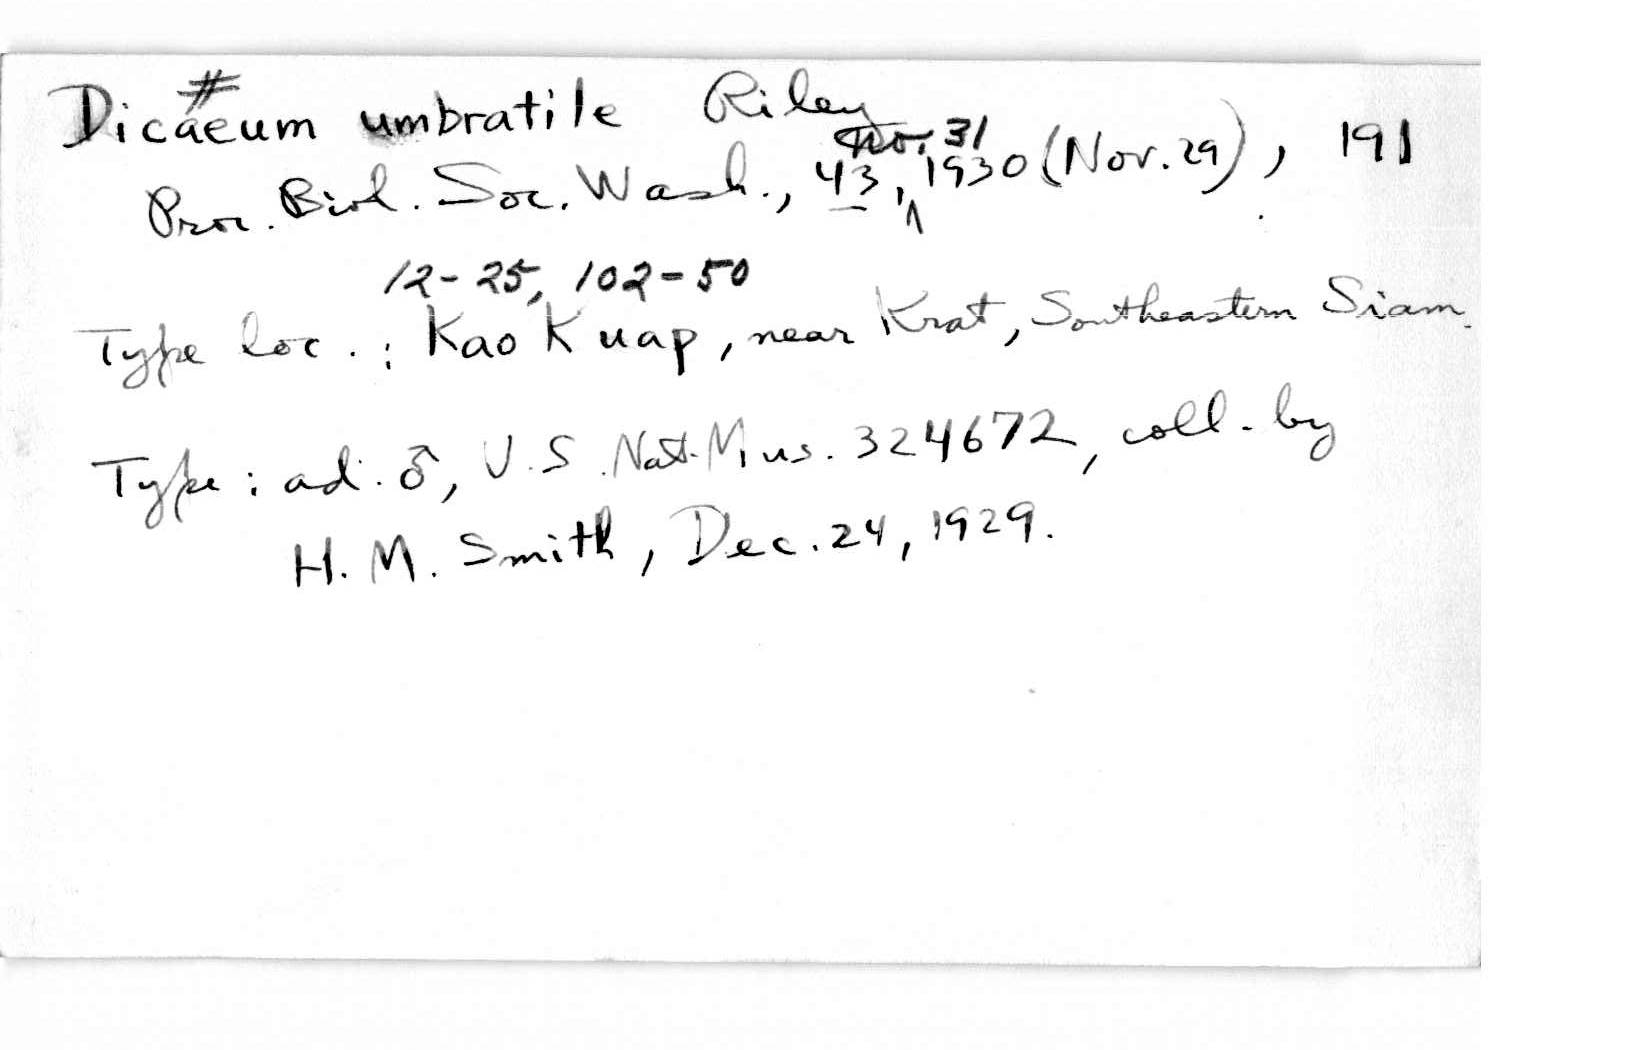 #
Dicaeum umbratile Riley
no. 31
Proc. Biol. Soc. Wash., 43, 1930 (Nov. 29), 191
12-25, 102-50
Type loc.: Kao Kuap, near Krat, Southeastern Siam.
Type: ad. ♂, U.S. Nat. Mus. 324672, coll. by
H. M. Smith, Dec. 24, 1929.